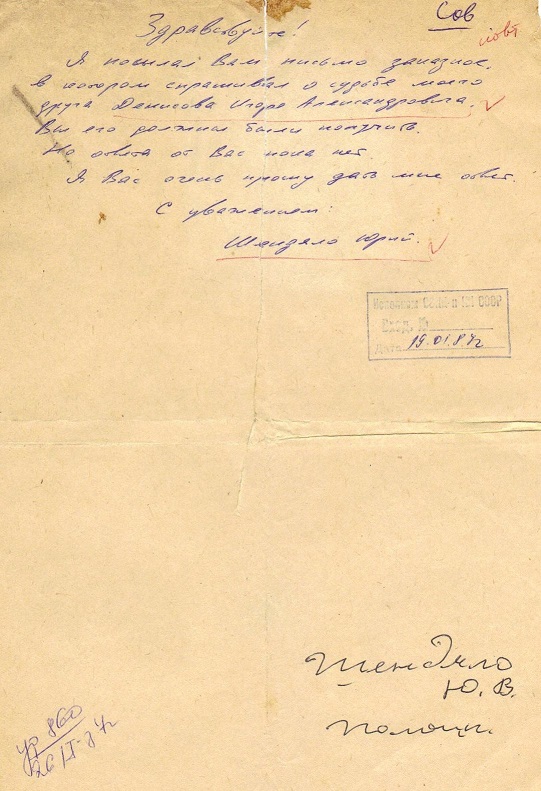 Сов
Здравствуйте!
Я посылал Вам письмо заказное,
в котором спрашивал о судьбе моего
друга Денисова Игоря Александровича.
Вы его должны были получить.
Но ответа от Вас пока нет.
Я Вас очень прошу дать мне ответ.
С уважением:
Шендяло Юрий.
СССР
Вход. №
Дата 19.01.87г
Шендяло
Ю. В.
Полоцк.
860